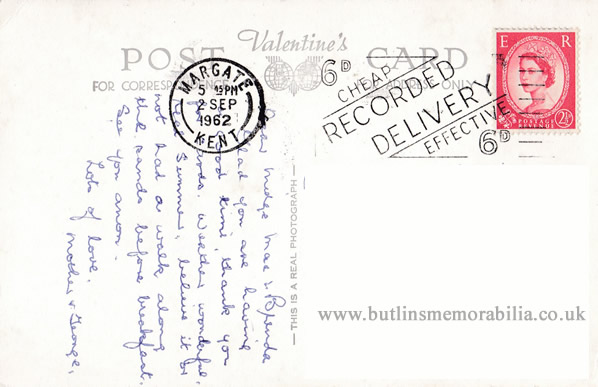 Valentine's
POST CARD
FOR CORRESPONDENCE
ADDRESS ONLY
MARGATE
5 45 PM
2 SEP
1962
KENT
6D
CHEAP
RECORDED
DELIVERY
EFFECTIVE
6D
E R
POSTAGE
REVENUE
2½D
Dear Midge Mac & Brenda
Glad you are having
a good time, thank you
for cards. Weather wonderful
here. Summer, believe it or
not had a walk along
the sands before breakfast.
See you anon.
Lots of love,
Mother & George.
— THIS IS A REAL PHOTOGRAPH —
www.butlinsmemorabilia.co.uk